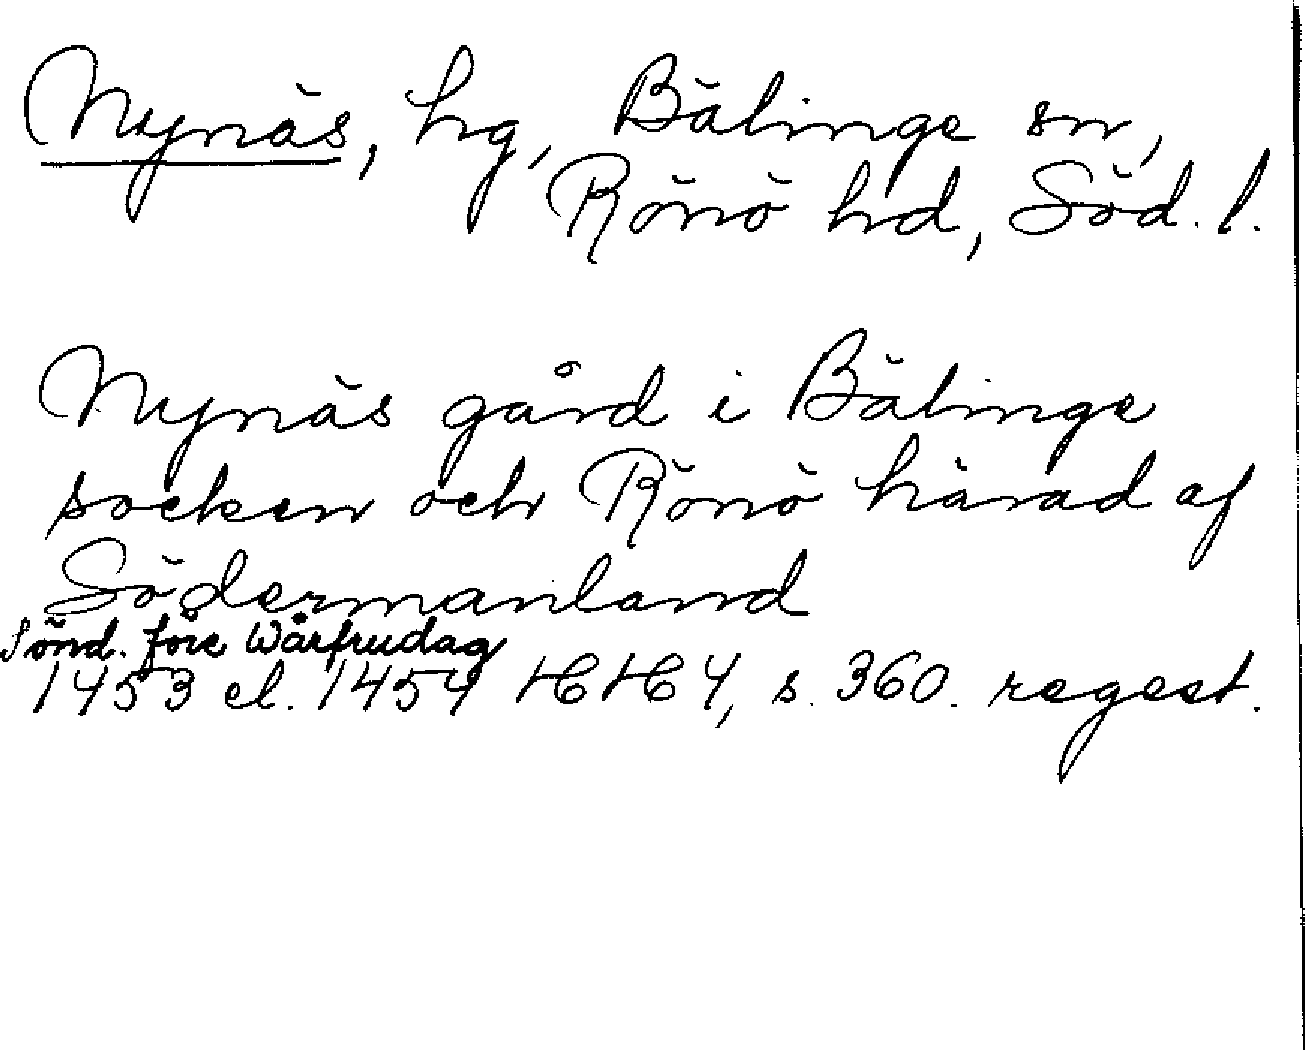 Nynäs, hg, Bälinge sn,
Rönö hd, Söd. l.
Nynäs gård i Bälinge
socken och Rönö härad af
Södermanland
Sönd. före Wårfrudag
1453 el. 1454 HH 4, s. 360. regest.